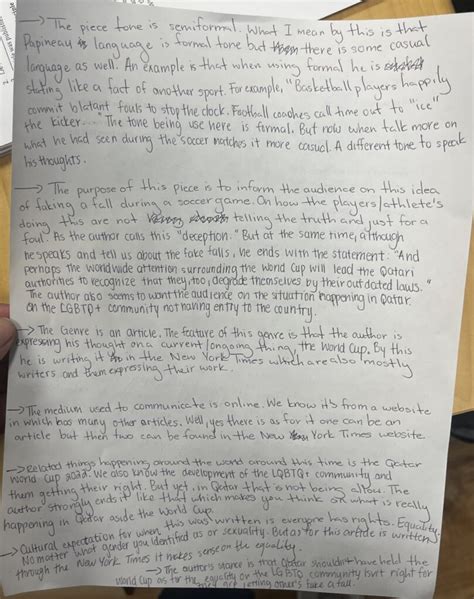 → The piece tone is semiformal. What I mean by this is that
Papineau is language is formal tone but there is some casual
language as well. An example is that when using formal he is
stating like a fact of another sport. For example, "Basketball players happily
commit blatant fouls to stop the clock. Football coaches call time out to "ice"
the kicker." The tone being use here is formal. But now when talk more on
what he had seen during the soccer matches it more casual. A different tone to speak
his thoughts.
→ The purpose of this piece is to inform the audience on this idea
of faking a fall during a soccer game. On how the players/athlete's
doing this are not telling the truth and just for a
foul. As the author calls this "deception." But at the same time, although
he speaks and tell us about the fake falls, he ends with the statement: "And
perhaps the worldwide attention surrounding the World Cup will lead the Qatari
authorities to recognize that they, too, degrade themselves by their outdated laws."
The author also seems to want the audience on the situation happening in Qatar
on the LGBTQ+ community not having entry to the country.
→ The Genre is an article. The feature of this genre is that the author is
expressing his thought on a current/ongoing thing, the World Cup. By this
he is writing it in the New York Times which are also mostly
writers and them expressing their work.
→ The medium used to communicate is online. We know it's from a website
in which has many other articles. Well, yes there is as for it one can be an
article but then two can be found in the New York Times website.
→ Related things happening around the world around this time is the Qatar
World Cup 2022. We also know the development of the LGBTQ+ community and
them getting their right. But yet, in Qatar that is not being allow. The
author strongly ends it like that which makes you think on what is really
happening in Qatar aside the World Cup.
→ Cultural expectation for when this was written is everyone has rights. Equality.
No matter what gender you identified us or sexuality. But as for this article is written
through the New York Times it makes sense on the equality.
→ The author's stance is that Qatar shouldn't have held the
World Cup as for the equality on the LGBTQ community isn't right for
letting other's take a fall.